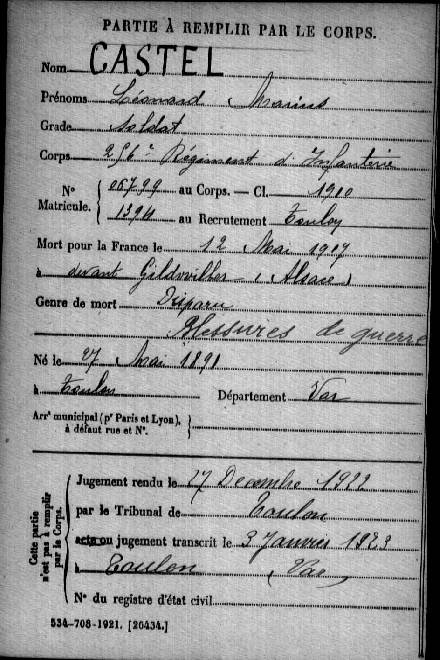 PARTIE À REMPLIR PAR LE CORPS.
Nom CASTEL
Prénoms Léonard Marius
Grade soldat
Corps 256e Régiment d'Infanterie
N° Matricule. 05799 au Corps. — Cl. 1910
1394 au Recrutement Toulon
Mort pour la France le 12 Mai 1917
à devant (Alsace)
Genre de mort Disparu
Blessures de guerre
Né le 27 Mai 1890
à Toulon Département Var
Arrt municipal (pr Paris et Lyon),
à défaut rue et N°.
Cette partie n'est pas à remplir par le Corps.
Jugement rendu le 27 Décembre 1922
par le Tribunal de Toulon
acte ou jugement transcrit le 3 Janvier 1923
à Toulon (Var)
N° du registre d'état civil
534-708-1921. [20434.]